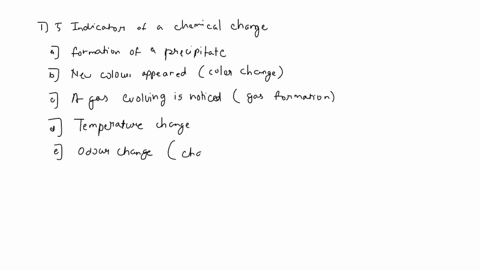 1) 5 Indicator of a chemical change
a] formation of a precipitate
b] New colour appeared (color change)
c] A gas evolving is noticed (gas formation)
d] Temperature change
e] Odour change (cha